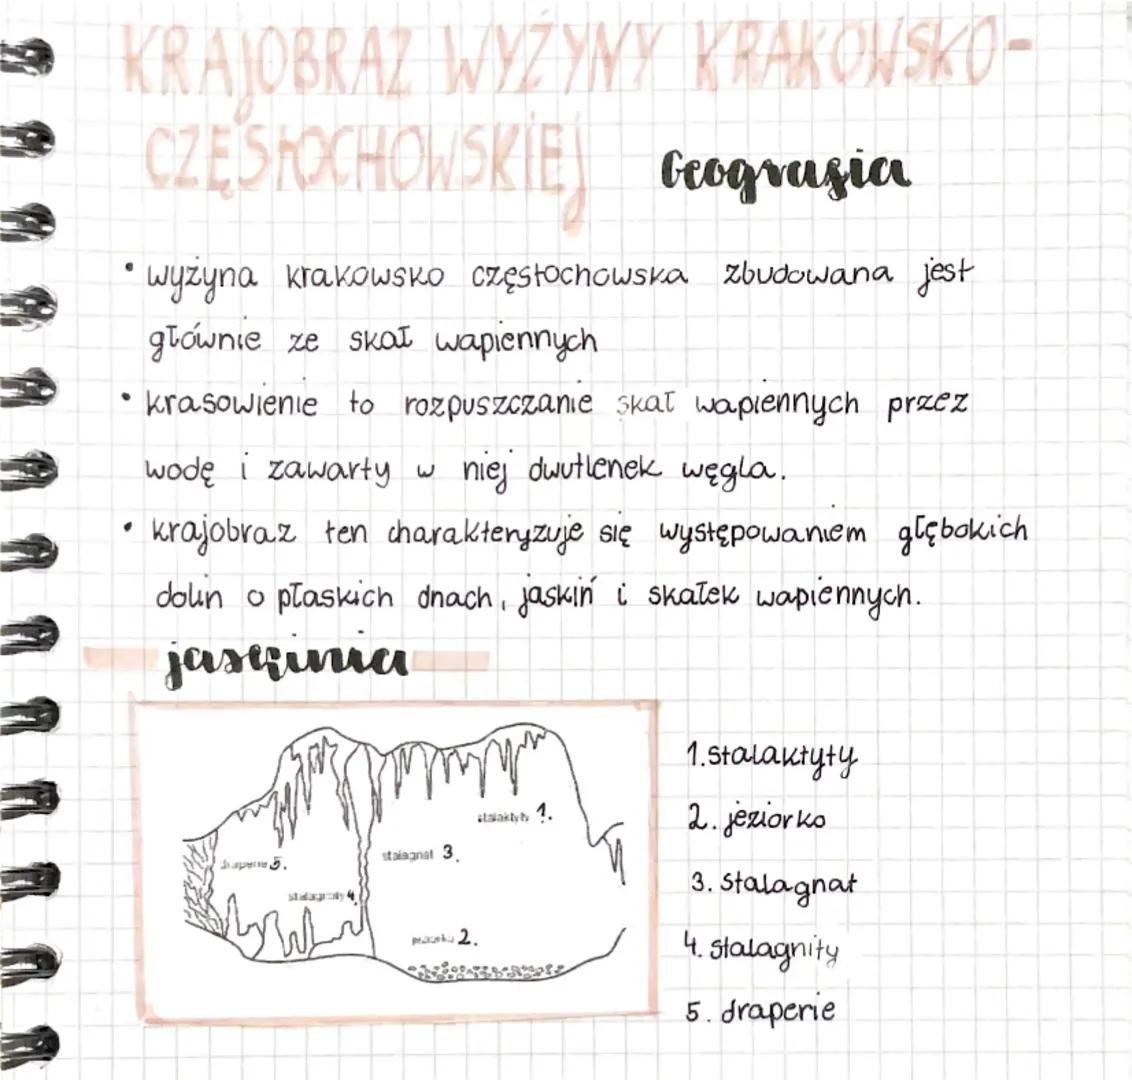 KRAJOBRAZ WYŻYNY KRAKOWSKO-
CZĘSTOCHOWSKIEJ
Geografia
• wyżyna krakowsko częstochowska zbudowana jest
głównie ze skał wapiennych
• krasowienie to rozpuszczanie skał wapiennych przez
wodę i zawarty w niej dwutlenek węgla.
• krajobraz ten charakteryzuje się występowaniem głębokich
dolin o płaskich dnach, jaskiń i skałek wapiennych.
jaskinia
stalaktyty 1.
draperie 5.
stalagnat 3.
stalagmity 4.
2.
1. stalaktyty
2. jeziorko
3. Stalagnat
4. stalagnity
5. draperie